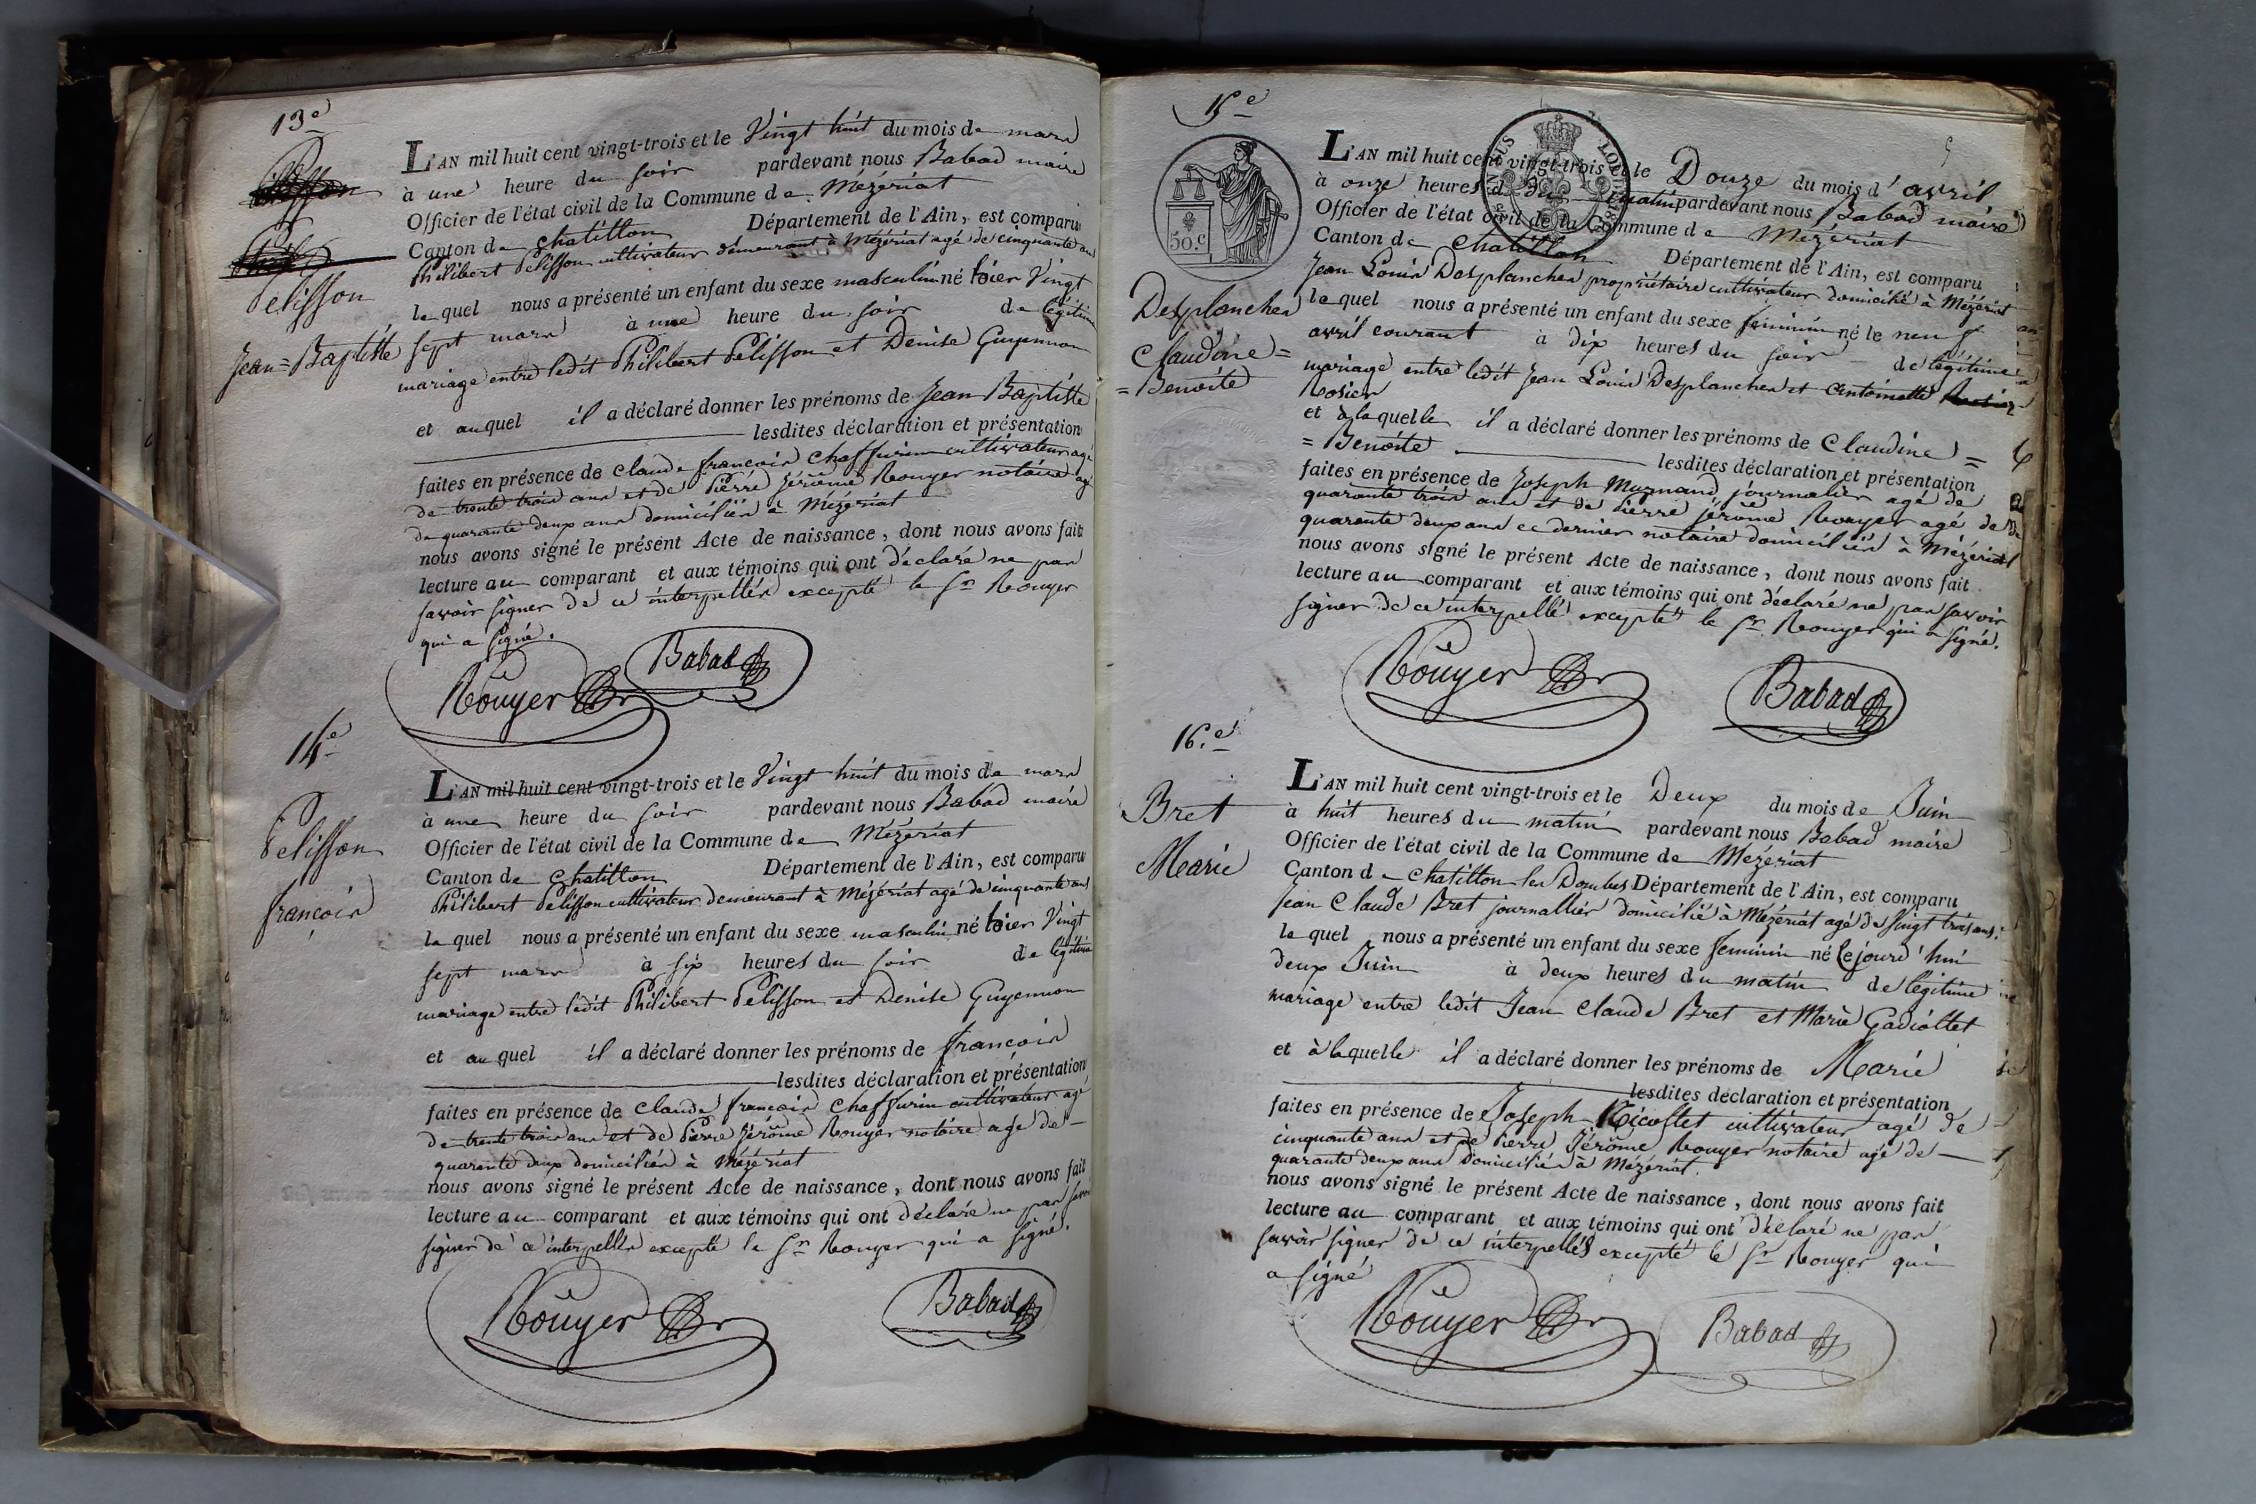 13e
Pelisson
Jean=Baptiste
L'AN mil huit cent vingt-trois et le Vingt huit du mois de mars
à une heure du soir pardevant nous Babad maire
Officier de l'état civil de la Commune de Mézériat
Canton de Chatillon Département de l'Ain, est comparu
Philibert Pelisson cultivateur demeurant à Mézériat agé de cinquante ans
lequel nous a présenté un enfant du sexe masculin né hier Vingt
sept mars à une heure du soir de légitime
mariage entre ledit Philibert Pelisson et Denise Guyennon
et auquel il a déclaré donner les prénoms de Jean Baptiste
lesdites déclaration et présentation
faites en présence de Claude françois Chaffurin cultivateur agé
de trente trois ans et de Pierre Jérôme Rouyer notaire agé
de quarante deux ans domiciliés à Mézériat
nous avons signé le présent Acte de naissance, dont nous avons fait
lecture au comparant et aux témoins qui ont déclaré ne pas
savoir signer de ce interpellés excepté le Sr Rouyer
qui a signé.
Rouyer Babad
14e
Pelisson
françois
L'AN mil huit cent vingt-trois et le Vingt huit du mois de mars
à une heure du soir pardevant nous Babad maire
Officier de l'état civil de la Commune de Mézériat
Canton de Chatillon Département de l'Ain, est comparu
Philibert Pelisson cultivateur demeurant à Mézériat agé de cinquante ans
lequel nous a présenté un enfant du sexe masculin né hier Vingt
sept mars à six heures du soir de légitime
mariage entre ledit Philibert Pelisson et Denise Guyennon
et auquel il a déclaré donner les prénoms de françois
lesdites déclaration et présentation
faites en présence de Claude françois Chaffurin cultivateur agé
de trente trois ans et de Pierre Jérôme Rouyer notaire agé de
quarante deux domiciliés à Mézériat
nous avons signé le présent Acte de naissance, dont nous avons fait
lecture au comparant et aux témoins qui ont déclaré ne pas savoir
signer de ce interpellés excepté le Sr Rouyer qui a signé.
Rouyer Babad
15e
50.c
Desplanches
Claudine=
=Benoite
L'AN mil huit cent vingt-trois et le Douze du mois d'avril
à onze heures du matin pardevant nous Babad maire
Officier de l'état civil de la Commune de Mézériat
Canton de Chatillon Département de l'Ain, est comparu
Jean Louis Desplanches propriétaire cultivateur domicilié à Mézériat
lequel nous a présenté un enfant du sexe féminin né le neuf
avril courant à dix heures du soir de légitime
mariage entre ledit Jean Louis Desplanches et Antoinette
Rosier
et à laquelle il a déclaré donner les prénoms de Claudine=
=Benoite lesdites déclaration et présentation
faites en présence de Joseph journalier agé de
quarante trois ans et de Pierre jérôme Rouyer agé de
quarante deux ans ce dernier notaire domiciliés à Mézériat
nous avons signé le présent Acte de naissance, dont nous avons fait
lecture au comparant et aux témoins qui ont déclaré ne pas savoir
signer de ce interpellé excepté le Sr Rouyer qui a signé.
Rouyer Babad
16.e
Bret
Marie
L'AN mil huit cent vingt-trois et le Deux du mois de Juin
à huit heures du matin pardevant nous Babad maire
Officier de l'état civil de la Commune de Mézériat
Canton de Chatillon les Dombes Département de l'Ain, est comparu
Jean Claude Bret journallier domicilié à Mézériat agé de vingt trois ans.
lequel nous a présenté un enfant du sexe féminin né le jourd'hui
deux Juin à deux heures du matin de légitime
mariage entre ledit Jean Claude Bret et Marie Gadiollet
et à laquelle il a déclaré donner les prénoms de Marie
lesdites déclaration et présentation
faites en présence de Joseph cultivateur agé de
cinquante ans et de Pierre Jérôme Rouyer notaire agé de
quarante deux ans Domiciliés à Mézériat.
nous avons signé le présent Acte de naissance, dont nous avons fait
lecture au comparant et aux témoins qui ont déclaré ne pas
savoir signer de ce interpellés excepté le Sr Rouyer qui
a signé
Rouyer Babad